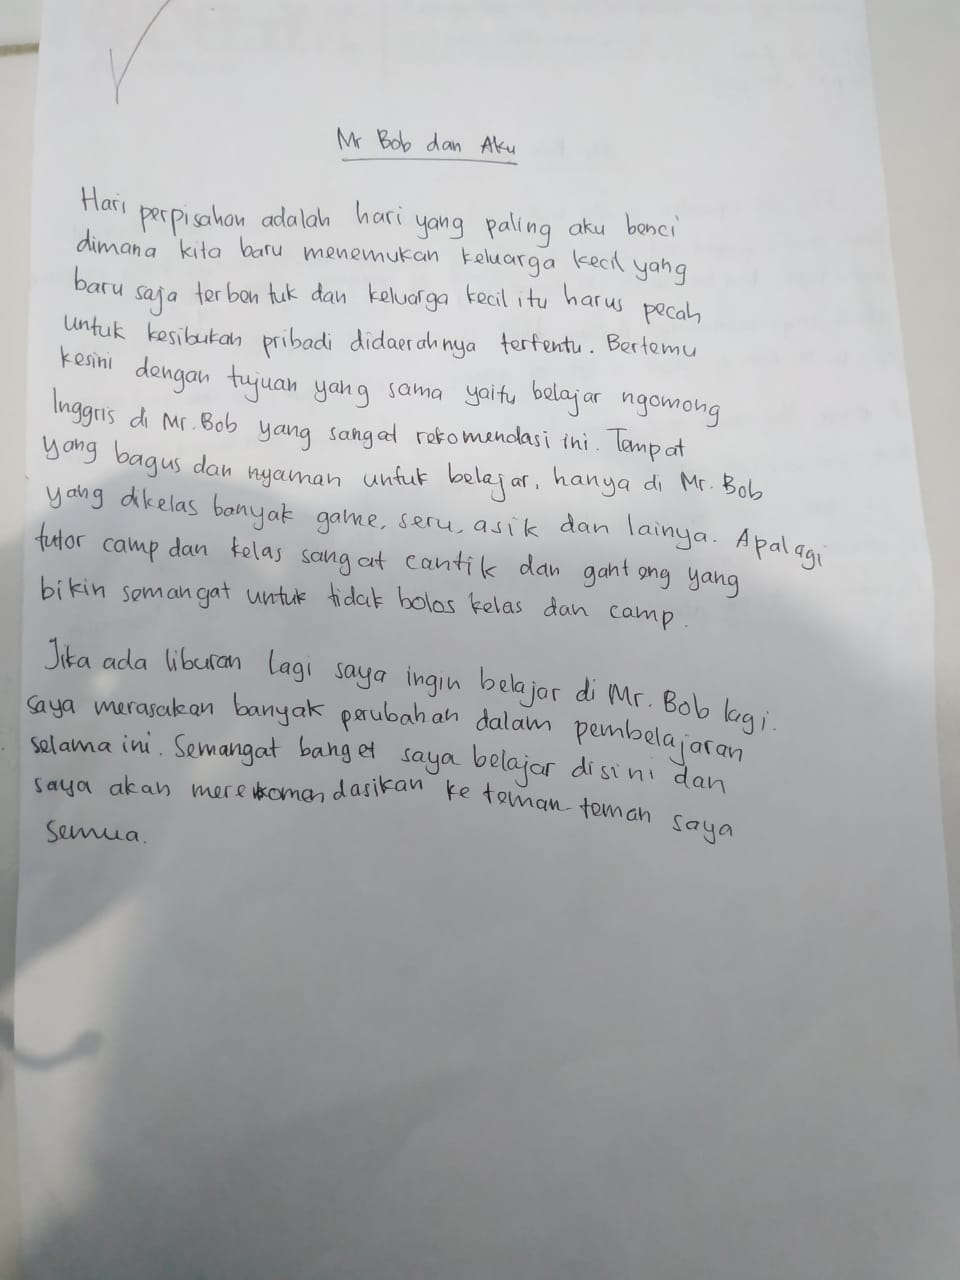 Mr Bob dan Aku
Hari perpisahan adalah hari yang paling aku benci
dimana kita baru menemukan keluarga kecil yang
baru saja terbentuk dan keluarga kecil itu harus pecah
untuk kesibukan pribadi didaerahnya tertentu. Bertemu
kesini dengan tujuan yang sama yaitu belajar ngomong
Inggris di Mr. Bob yang sangat rekomendasi ini. Tempat
yang bagus dan nyaman untuk belajar, hanya di Mr. Bob
yang dikelas banyak game, seru, asik dan lainya. Apalagi
tutor camp dan kelas sangat cantik dan ganteng yang
bikin semangat untuk tidak bolos kelas dan camp.
Jika ada liburan lagi saya ingin belajar di Mr. Bob lagi.
saya merasakan banyak perubahan dalam pembelajaran
selama ini. Semangat banget saya belajar disini dan
saya akan merekomendasikan ke teman-teman saya
semua.